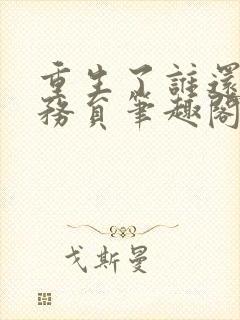 重生了誰還
務員筆趣閣
戈斯曼